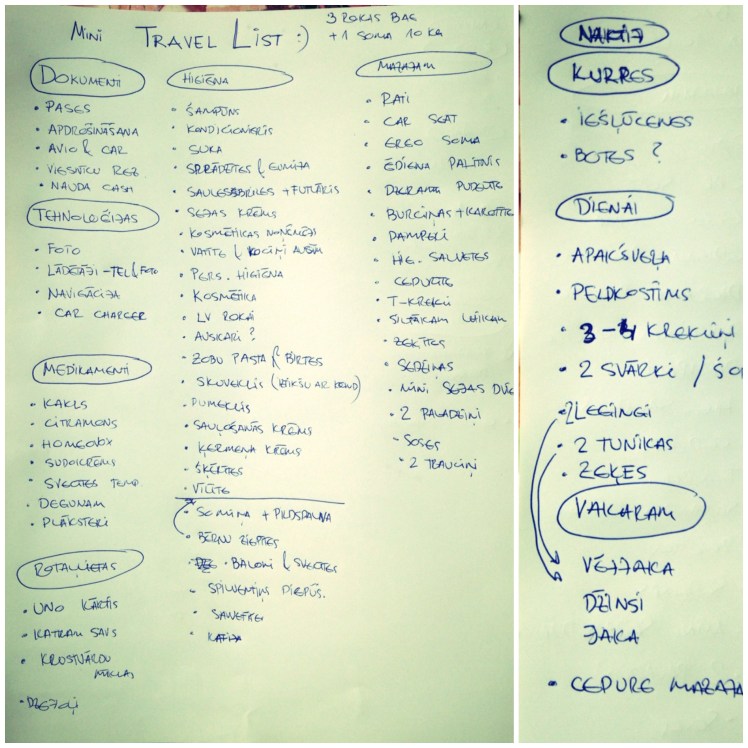 Mini TRAVEL LIST :)
3 ROKAS BAG
+ 1 SOMA 10 KG
DOKUMENTI
• PASES
• APDROŠINĀŠANA
• AVIO & CAR
VIESNĪCU REZ.
• NAUDA CASH
TEHNOLOĢIJAS
• FOTO
• LĀDĒTĀJI - TEL & FOTO
• NAVIGĀCIJA
• CAR CHARGER
MEDIKAMENTI
• KAKLS
• CITRAMONS
• HOMEOVOX
• SUDOKRĒMS
• SVECTES TEMP.
• DEGUNAM
• PLĀKSTERI
ROTAĻLIETAS
• UNO KĀRTIS
• KATRAM SAVS
• KRUSTVĀRDU
MĪKLAS
HIGIĒNA
• ŠAMPŪNS
• KONDICIONIERIS
• SUKA
• SPRĀDZĪTES & GUMIJA
• SAULESBRILLES + FUTLĀRIS
• SEJAS KRĒMS
• KOSMĒTIKAS NOŅĒMĒJI
• VATĪTE & KOCIŅI AUSĪM
• PERS. HIGIĒNA
• KOSMĒTIKA
• LV ROKAI
• AUSKARI ?
• ZOBU PASTA & BIRTES
• SKUVEKLIS
• PUMEKLIS
• SAUĻOŠANĀS KRĒMS
• ĶERMEŅA KRĒMS
• ŠĶĒRĪTES
• VĪLĪTE
• SOMIŅA + PILDSPALVA
• BĒRNU ZIEPTES
• BALONI & SVECTES
• SPILVENTIŅŠ PIEPŪŠ.
• SALVETES
• KAFIJA
MAZAJAM
• RATI
• CAR SEAT
• ERGO SOMA
• ĒDIENA PALIKTNIS
• DZERAMĀ PUDELĪTE
• BURCIŅAS + KAROTĪTE
• PAMPERI
• HIG. SALVETES
• CEPURĪTE
• T-KREKLI
• SILTĀKAM LAIKAM
• ZEĶĪTES
• SEDZIŅAS
• MINI SEJAS DVIE
• 2 PALADZIŅI
• 2 TRAUCIŅI
NAKTIJ
KURPES
• IEŠĻŪCENES
• BOTES ?
DIENAI
• APAKŠVEĻA
• PELDKOSTĪMS
• 3-4 KREKLIŅI
• 2 SVĀRKI / ŠO
• 2 LEGINGI
• 2 TUNIKAS
• ZEĶES
VAKARAM
VĒJJAKA
DŽINSI
JAKA
• CEPURE MAZAJA